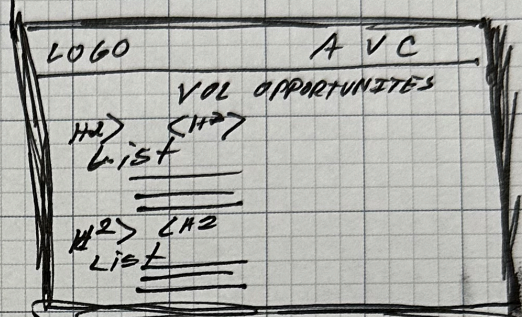 LOGO A V C
VOL OPPORTUNITES
H2> <H2>
List
H2> <H2
List